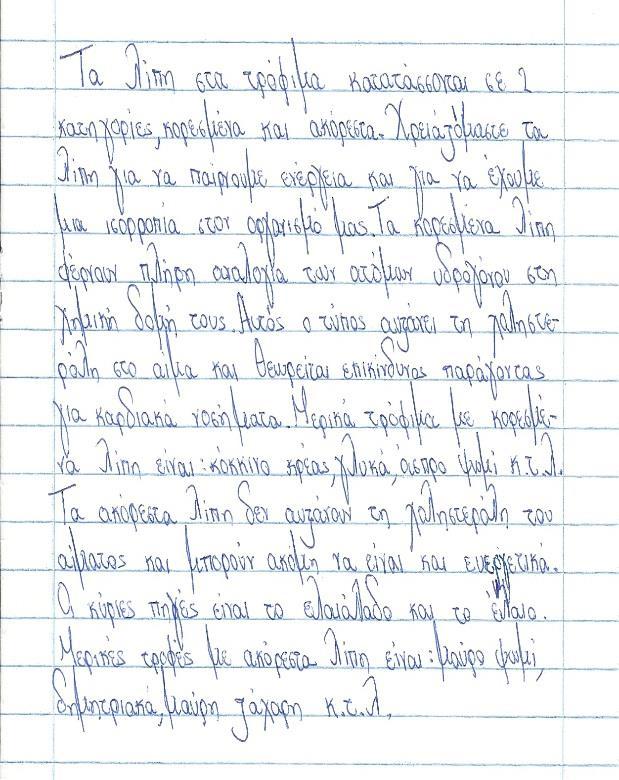 Τα λίπη στα τρόφιμα κατατάσσονται σε 2
κατηγορίες, κορεσμένα και ακόρεστα. Χρειαζόμαστε τα
λίπη για να παίρνουμε ενέργεια και για να έχουμε
μια ισορροπία στον οργανισμό μας. Τα κορεσμένα λίπη
φέρνουν πλήρη αναλογία των ατόμων υδρογόνου στη
χημική δομή τους. Αυτός ο τύπος αυξάνει τη χοληστε-
ρόλη στο αίμα και θεωρείται επικίνδυνος παράγοντας
για καρδιακά νοσήματα. Μερικά τρόφιμα με κορεσμέ-
να λίπη είναι: κόκκινο κρέας, γλυκά, άσπρο ψωμί κ.τ.λ.
Τα ακόρεστα λίπη δεν αυξάνουν τη χοληστερόλη του
αίματος και μπορούν ακόμη να είναι και ευεργετικά.
Οι κύριες πηγές είναι το ελαιόλαδο και το
Μερικές τροφές με ακόρεστα λίπη είναι: μαύρο ψωμί,
δημητριακά, μαύρη ζάχαρη κ.τ.λ.